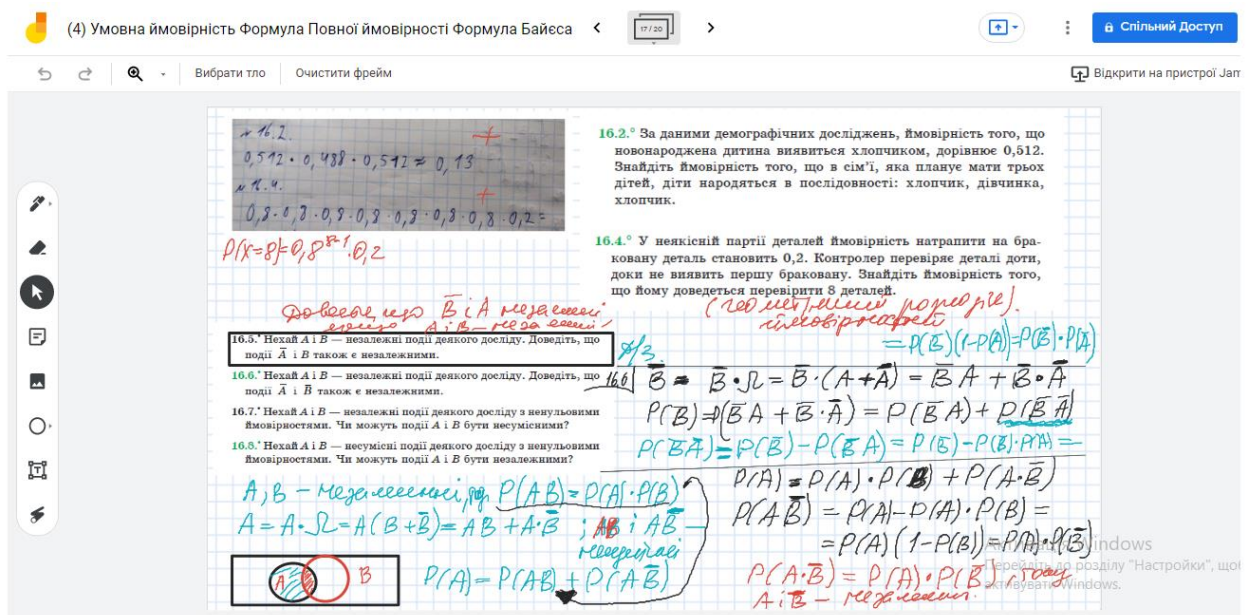 (4) Умовна ймовірність Формула Повної ймовірності Формула Байєса
17 / 20
Спільний Доступ
Вибрати тло
Очистити фрейм
Відкрити на пристрої Jam
№ 16.2.
0,512 · 0,488 · 0,512 ≈ 0,13
№ 16.4.
0,8 · 0,8 · 0,8 · 0,8 · 0,8 · 0,8 · 0,8 · 0,2 =
P(X=8)=0,8⁸⁻¹·0,2
16.2.° За даними демографічних досліджень, ймовірність того, що
новонароджена дитина виявиться хлопчиком, дорівнює 0,512.
Знайдіть ймовірність того, що в сім'ї, яка планує мати трьох
дітей, діти народяться в послідовності: хлопчик, дівчинка,
хлопчик.
16.4.° У неякісній партії деталей ймовірність натрапити на бра-
ковану деталь становить 0,2. Контролер перевіряє деталі доти,
доки не виявить першу браковану. Знайдіть ймовірність того,
що йому доведеться перевірити 8 деталей.
(геометричний розподіл
ймовірностей).
що B̅ і A незалежні
якщо A і B – незалежні
16.5.• Нехай A і B — незалежні події деякого досліду. Доведіть, що
події A̅ і B також є незалежними.
Д/з.
16.6.• Нехай A і B — незалежні події деякого досліду. Доведіть, що
події A̅ і B̅ також є незалежними.
16.7.• Нехай A і B — незалежні події деякого досліду з ненульовими
ймовірностями. Чи можуть події A і B бути несумісними?
16.8.• Нехай A і B — несумісні події деякого досліду з ненульовими
ймовірностями. Чи можуть події A і B бути незалежними?
= P(B̅)(1-P(A))=P(B̅)·P(A̅)
16.6 B̅ = B̅·Ω = B̅·(A+A̅) = B̅A + B̅·A̅
P(B̅)=P(B̅A + B̅·A̅) = P(B̅A) + P(B̅A̅)
P(B̅A̅) = P(B̅) – P(B̅A) = P(B̅) – P(B̅)·P(A) =
A, B – незалежні, P(AB)=P(A)·P(B)
A = A·Ω = A(B+B̅) = AB + A·B̅ ; AB і AB̅ –
P(A) = P(AB) + P(AB̅)
A B
P(A) = P(A)·P(B) + P(A·B̅)
P(AB̅) = P(A) – P(A)·P(B) =
= P(A)(1-P(B)) = P(A)·P(B̅)
P(A·B̅) = P(A)·P(B̅), тому
A і B̅ – незалежні.
Windows
Перейдіть до розділу "Настройки", щоб
активувати Windows.